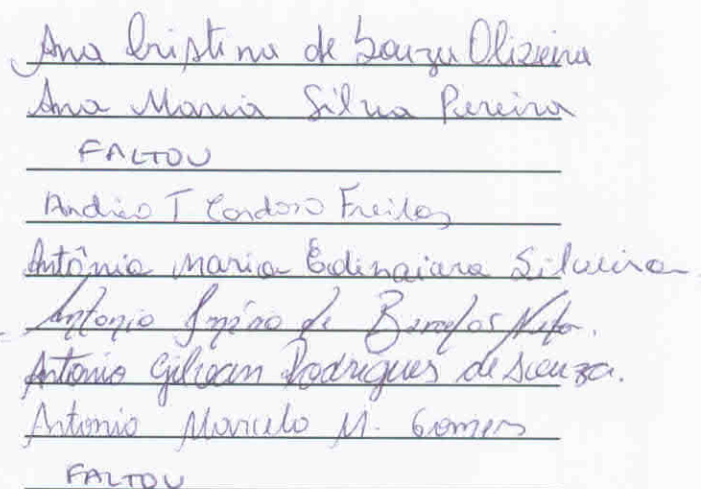 Ana Cristina de Souza Oliveira
Ana Maria Silva Pereira
FALTOU
T Cardoso Freitas
Antônia Maria Edinaiara Silveira
Antonio de Neto.
Antonio Gilvan Rodrigues de Souza.
Antonio Marcelo M. Gomes
FALTOU